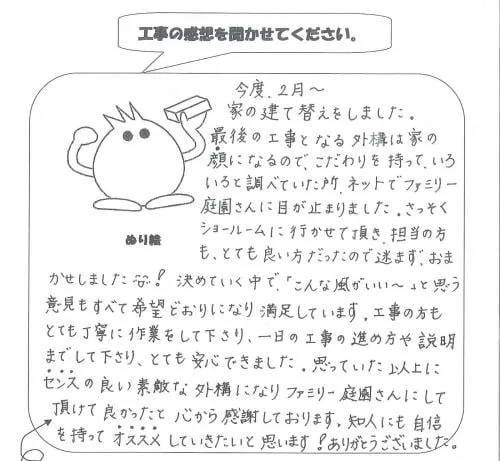 工事の感想を聞かせてください。
今度、2月～
家の建て替えをしました。
最後の工事となる外構は家の
顔になるので、こだわりを持って、いろ
いろと調べていた所、ネットでファミリー
庭園さんに目が止まりました。さっそく
ショールームに行かせて頂き、担当の方
も、とても良い方だったので迷まず、おま
ぬり絵
かせしました！決めていく中で、「こんな風がいい～」と思う
意見もすべて希望どおりになり満足しています。工事の方も
とても丁寧に作業をして下さり、一日の工事の進め方や説明
までして下さり、とても安心できました。思っていた以上に
センスの良い素敵な外構になりファミリー庭園さんにして
頂けて良かったと心から感謝しております。知人にも自信
を持ってオススメしていきたいと思います！ありがとうございました。